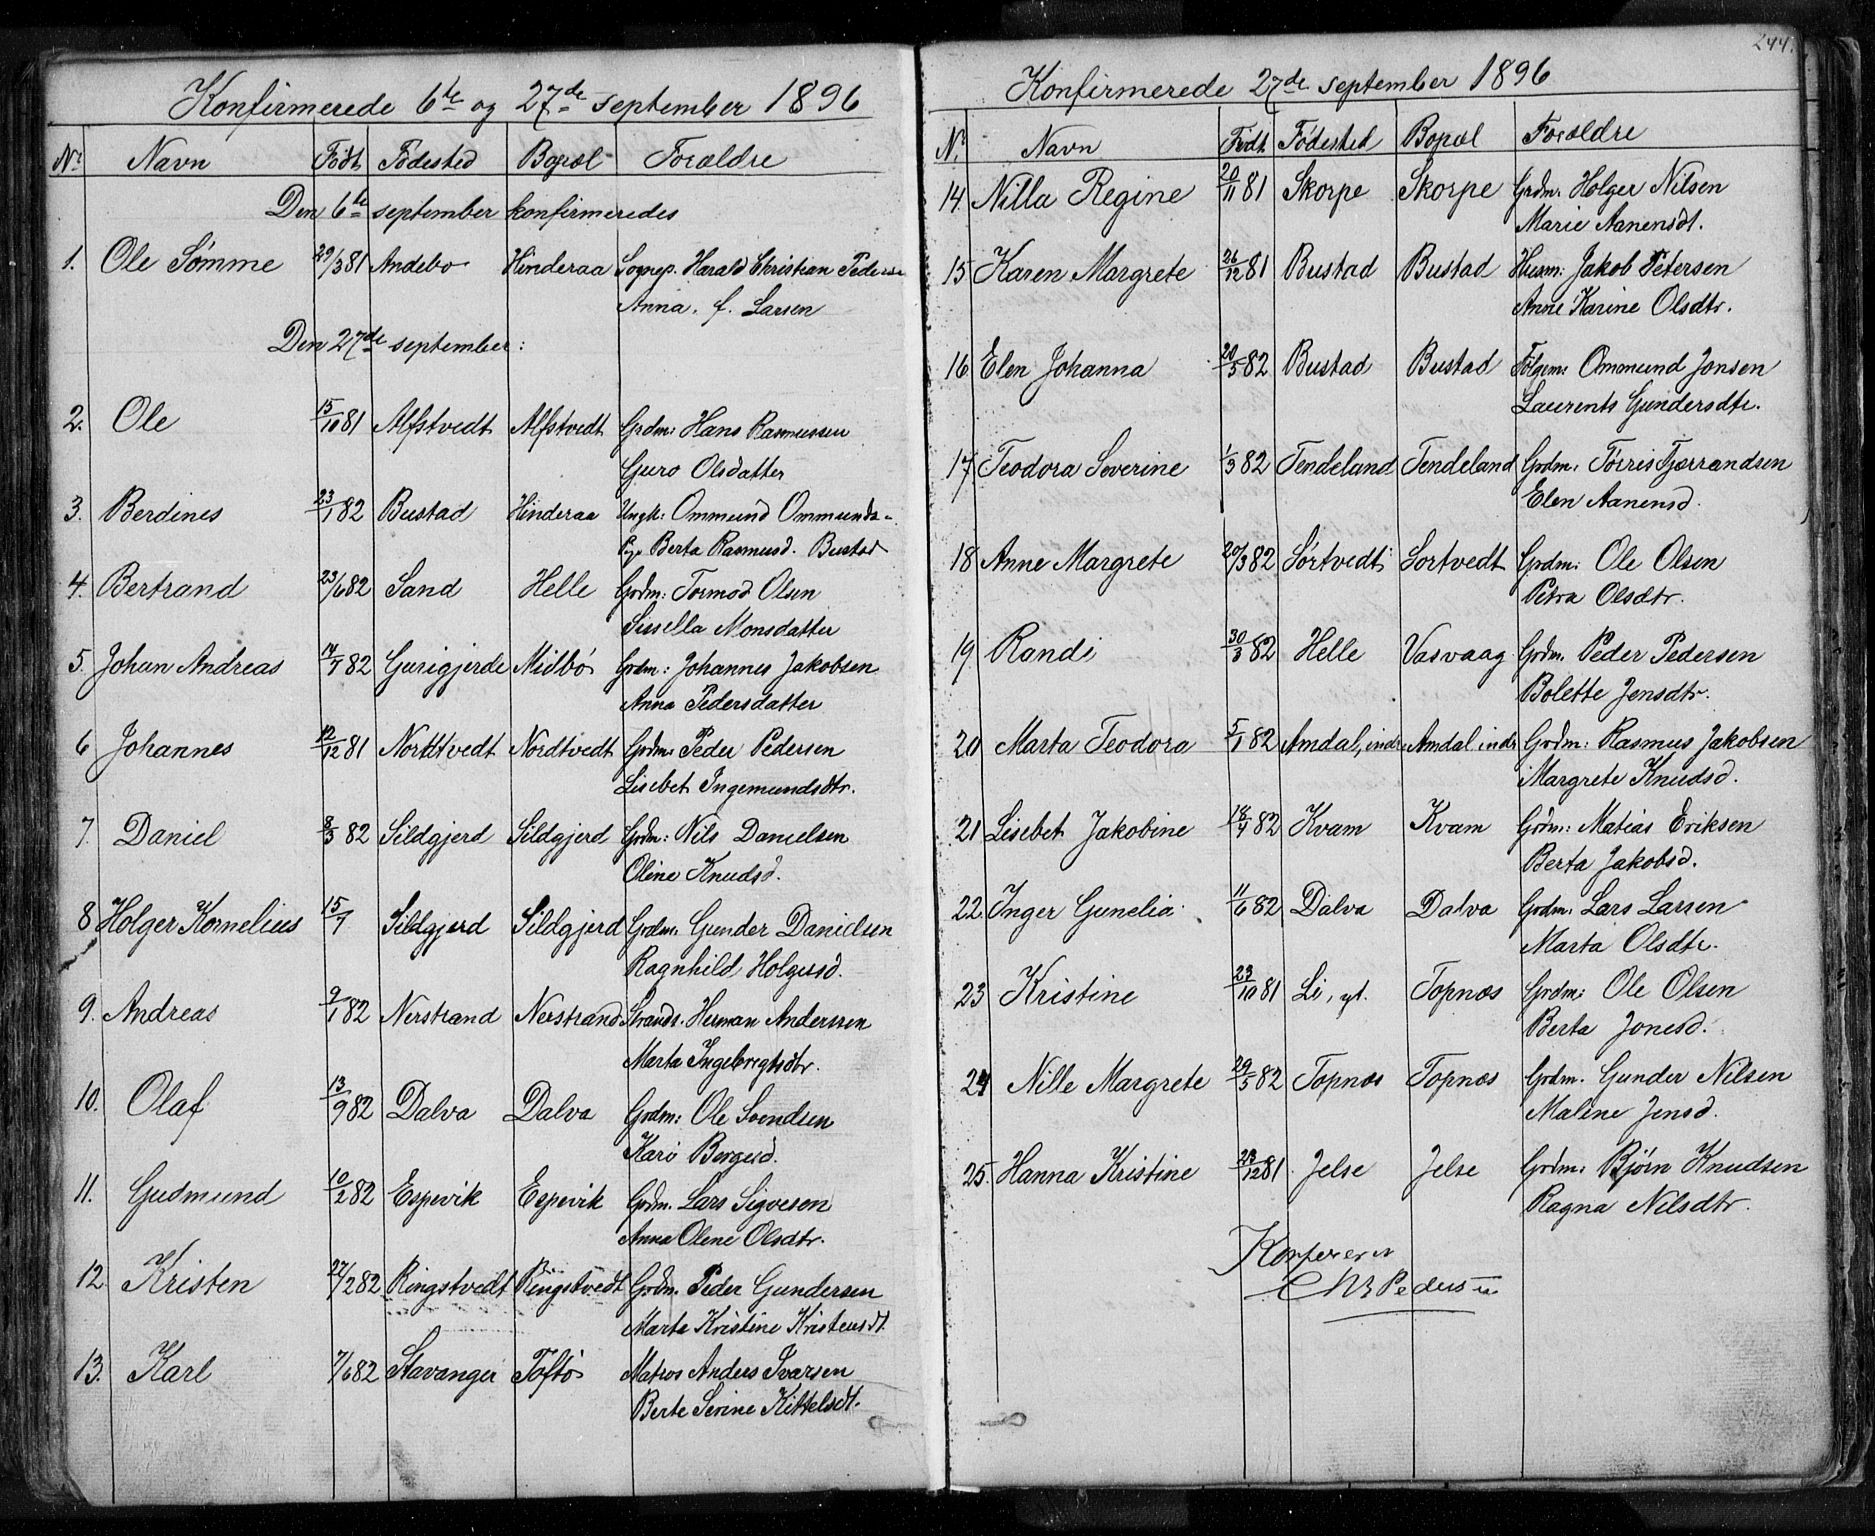 Konfirmerede 6te og 27de september 1896
Nr Navn Födt Födested Bopæl Forældre
Den 6te september konfirmeredes
1. Ole Sømme 29/3 81 Andebo Hinderaa Sognep. Harald Christian Pedersen
Anna, f. Larsen
Den 27de september:
2. Ole 15/10 81 Alfstvedt Alfstvedt Grdm: Hans Rasmussen
Guro Olsdatter
3. Berdines 23/1 82 Bustad Hinderaa Ungk: Ommund Ommunds-
Pige Berta Rasmusd. Bustad
4. Bertrand 23/6 82 Sand Helle Grdm: Tormod Olsen
Sissella Monsdatter
5. Johan Andreas 14/7 82 Gurigjerde Midbö Grdm: Johannes Jakobsen
Anna Pedersdatter
6 Johannes 12/12 81 Nordtvedt Nordtvedt Grdm: Peder Pedersen
Lisebet Ingemundsdtr.
7. Daniel 8/3 82 Sildgjerd Sildgjerd Grdm: Nils Danielsen
Oline Knudsd.
8 Holger Kornelius 15/7 Sildgjerd Sildgjerd Grdm: Gunder Danielsen
Ragnhild Holgersd.
9. Andreas 9/1 82 Nerstrand Nerstrand Strands. Herman Anderssen
Marta Ingebregtsdtr.
10. Olaf 13/9 82 Dalva Dalva Grdm: Ole Svendsen
Kari Bergesd.
11. Gudmund 10/2 82 Espevik Espevik Grdm. Lars Sigvesen
Anna Olene Olsdtr.
12 Kristen 27/2 82 Ringstvedt Ringstvedt Grdm. Peder Gundersen
Marta Kristine Kristensdt.
13. Karl 7/6 82 Stavanger Toftö Matros Anders Ivarsen
Berte Serine Kittelsdt.
244.
Konfirmerede 27de september 1896
Nr. Navn Födt Födested Bopæl Forældre
14. Nilla Regine 20/11 81 Skorpe Skorpe Grdm. Holger Nilsen
Marie Aanensdt.
15 Karen Margrete 26/12 81 Bustad Bustad Husm: Jakob Petersen
Anne Karine Olsdtr.
16 Elen Johanna 20/5 82 Bustad Bustad Folgem: Ommund Jonsen
Laurents Gundersdtr.
17 Teodora Severine 1/3 82 Tendeland Tendeland Grdm. Törris Tjerrandsen
Elen Aanensd.
18. Anne Margrete 20/3 82 Sörtvedt Sortvedt Grdm: Ole Olsen
Petra Olsdtr.
19 Randi 30/3 82 Helle Vasvaag Grdm. Peder Pedersen
Bolette Jensdtr.
20 Marta Teodora 5/1 82 Amdal, indr. Amdal indr Grdm: Rasmus Jakobsen
Margrete Knudsd.
21 Lisebet Jakobine 18/4 82 Kvam Kvam Grdm: Matias Eriksen
Berta Jakobsd.
22. Inger Gunelia 11/6 82 Dalva Dalva Grdm. Lars Larsen
Marta Olsdtr.
23 Kristine 23/10 81 Li, yt. Topnes Grdm: Ole Olsen
Berta Jonesd.
24 Nille Margrete 29/5 82 Topnes Topnes Grdm. Gunder Nilsen
Malene Jensd.
25. Hanna Kristine 23/12 81 Jelse Jelse Grdm: Björn Knudsen
Ragna Nilsdtr.
Konfereret
Chr Pedersen